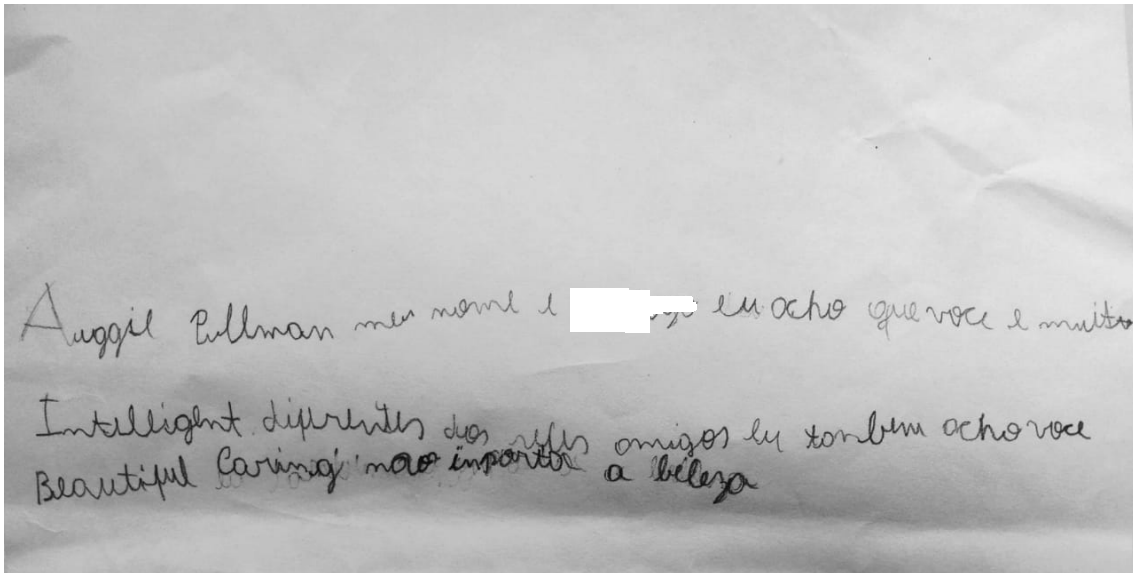 Auggie Pullman meu nome e eu acho que voce e muito
Intelligent diferentes dos amigos eu tonbem acho voce
Beautiful Caring nao inporta a beleza